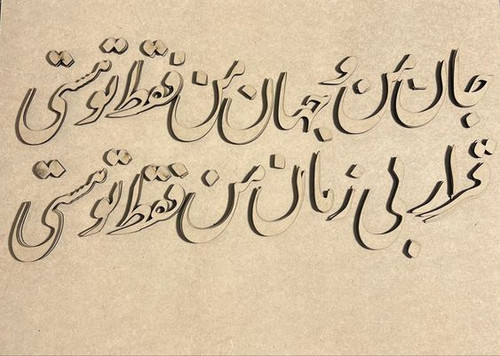 جان من و جهان من فقط تو هستی
قرار بی زمان من فقط تو هستی